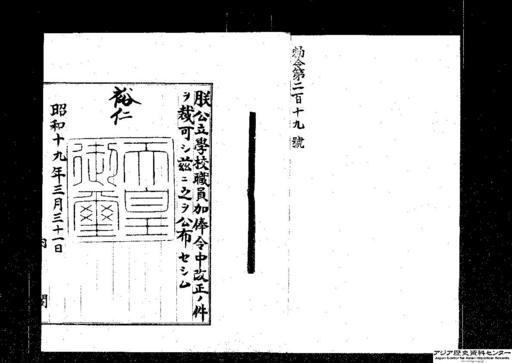 勅令第二百十九號
朕公立學校職員加俸令中改正ノ件
ヲ裁可シ茲ニ之ヲ公布セシム
裕仁
天皇
御璽
昭和十九年三月三十一日
内
閣
アジア歴史資料センター
Japan Center for Asian Historical Records